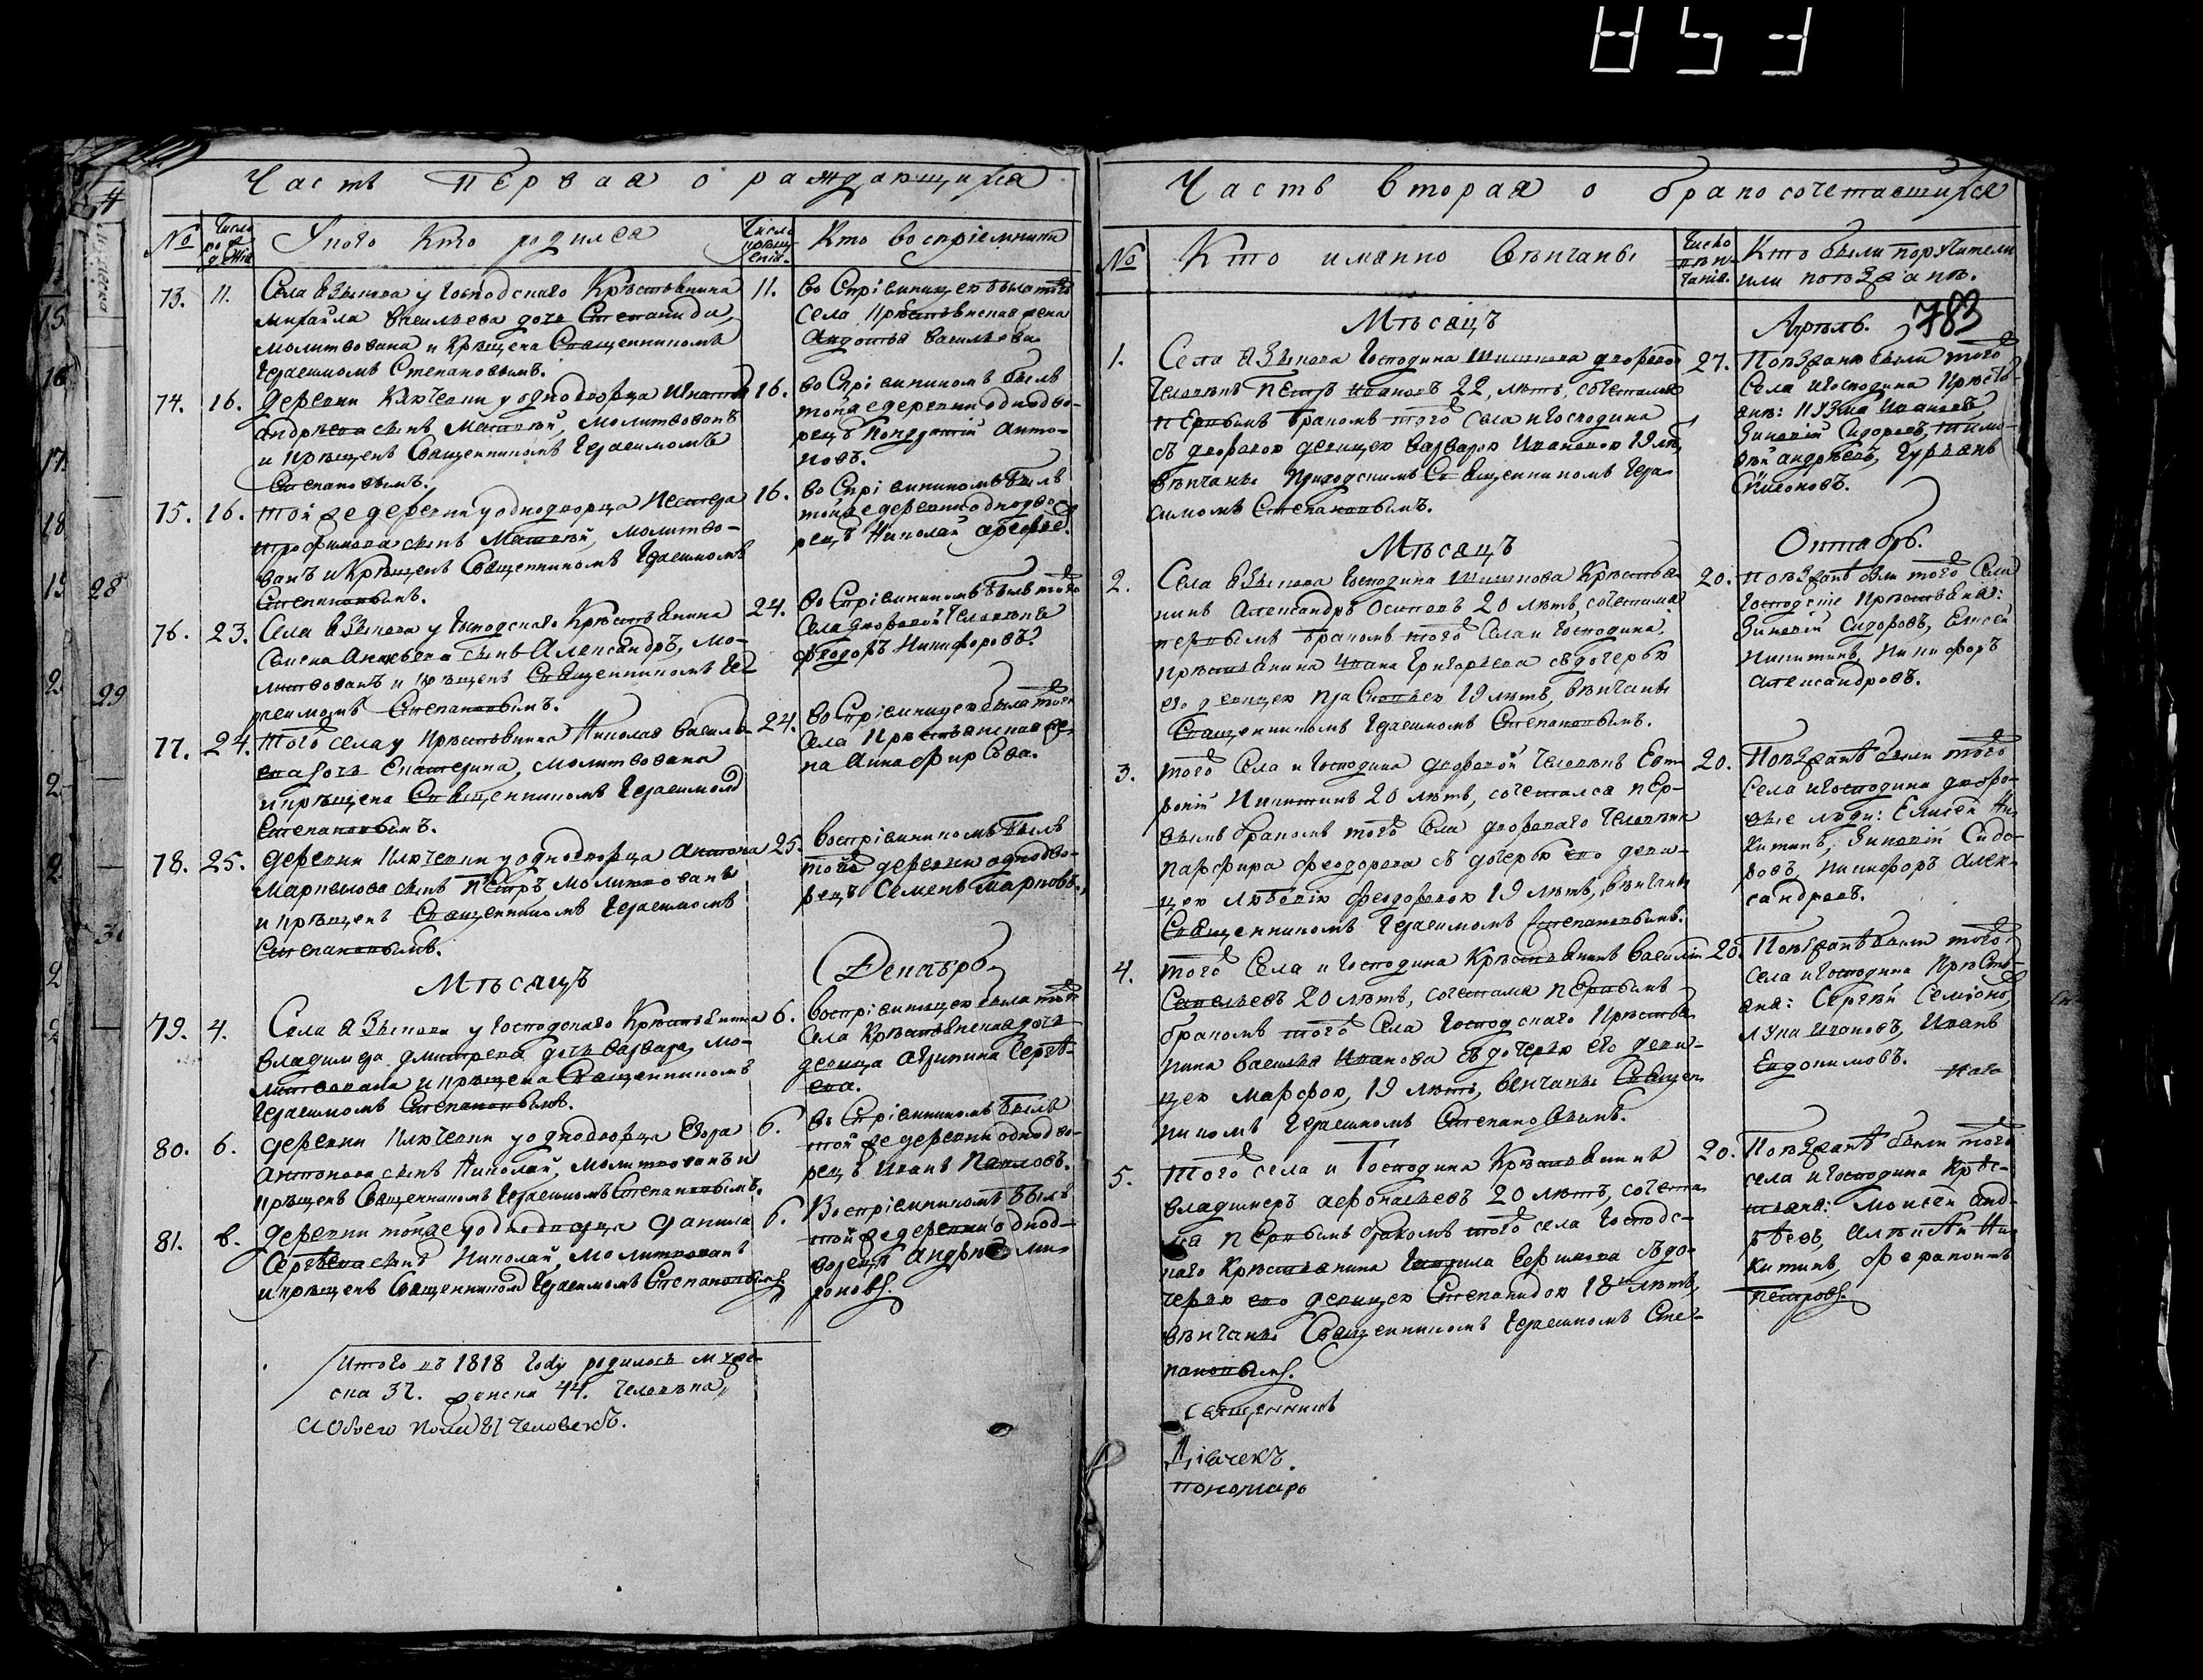 Часть первая о раждающихся
№
Число рождения
У кого кто родился
Число крещения
Кто восприемники
73.
11.
Села Вязькова у Господскаго Крѣстьянина
Михайла Васильева дочь Степанида,
молитвована и крѣщена Священникомъ
Герасимомъ Степановымъ.
11.
Воспріемницею была того
села Крѣстьянская жена
Авдотья Васильева.
74.
16.
деревни Ключевки у однодворца Игнатія
Андрѣева сынъ Матвѣй, молитвованъ
и крѣщенъ Священникомъ Герасимомъ
Степановымъ.
16.
Воспріемникомъ былъ
той же деревни однодво-
рецъ Кондратій Анто-
новъ.
75.
16.
той же деревни у однодворца Нестера
Трофимова сынъ Матвѣй, молитво-
ванъ и крѣщенъ Священникомъ Герасимомъ
Степановымъ.
16.
Воспріемникомъ былъ
той же деревни однодво-
рецъ Николай
76.
23.
Села Вязькова у Господскаго Крѣстьянина
Семена Анисьева сынъ Александръ, мо-
литвованъ и крѣщенъ Священникомъ Ге-
расимомъ Степановымъ.
24.
Воспріемникомъ былъ того
села дворовой человѣкъ
Феодоръ Никифоровъ.
77.
24.
того села у крѣстьянина Николая Василь-
ева дочь Екатерина, молитвована
и крѣщена Священникомъ Герасимомъ
Степановымъ.
24.
Воспріемницею была того
села Крѣстьянская же-
на Анна Фирсова.
78.
25.
деревни Ключевки у однодворца Антона
Маркелова сынъ Петръ молитвованъ
и крѣщенъ Священникомъ Герасимомъ
Степановымъ.
25.
Воспріемникомъ былъ
той же деревни однодво-
рецъ Семенъ Марковъ.
Мѣсяцъ
Декабрь
79.
4.
Села Вязькова у Господскаго Крѣстьянина
Владимера Дмитрева дочь Варвара, мо-
литвована и крѣщена Священникомъ
Герасимомъ Степановымъ.
6.
Воспріемницею была того
села Крѣстьянская дочь
девица Агрипина Сергѣ-
ева.
80.
6.
деревни Ключевки у однодворца Егора
Антонова сынъ Николай, молитвованъ и
крѣщенъ Священникомъ Герасимомъ Степановымъ.
6.
Воспріемникомъ былъ
той же деревни однодво-
рецъ Иванъ Павловъ.
81.
6.
деревни той же у однодворца Данила
Сергѣева сынъ Николай, молитвованъ
и крѣщенъ Священникомъ Герасимомъ Степановымъ.
6.
Воспріемникомъ былъ
той же деревни однод-
ворецъ Андрей Ми-
роновъ.
Итого въ 1818 году родилось мужес-
ка 37. женска 44. человѣка,
а обоего пола 81 человекъ.
Часть вторая о бракосочетавшихся
№
Кто именно вѣнчаны
Число вѣнчания
Кто были поручители
или поѣзжанѣ.
783
Мѣсяцъ
Апрель.
1.
Села Вязькова Господина Шишкова дворовой
человѣкъ Петръ Ивановъ 22, лѣтъ, сочетался
первымъ бракомъ того села и Господина
съ дворовою девицею Варварою Ивановою 19 лѣ
вѣнчаны Приходскимъ Священникомъ Гера-
симомъ Степановымъ.
27.
Поѣзжанѣ были того
села и Господина Крѣсть-
янѣ: Кузма Ивановъ,
Зиновій Сидоровъ, Тимо-
фей Андрѣевъ, Гурьянъ
Симоновъ.
Мѣсяцъ
Октябрь.
2.
Села Вязькова Господина Шишкова Крѣстья-
нинъ Александръ Осиповъ 20 лѣтъ, сочетался
первымъ бракомъ того села и Господина,
крѣстьянина Ивана Григорьева съ дочерью
его девицею Прасковьею 19 лѣтъ, вѣнчаны
Священникомъ Герасимомъ Степановымъ.
20.
поѣзжанѣ были того села
Господскіе Крѣстьянѣ:
Зиновій Сидоровъ, Елисей
Никитинъ, Никифоръ
Александровъ.
3.
того села и Господина дворовой человѣкъ Евт-
ропій Никитинъ 20 лѣтъ, сочетался пер-
вымъ бракомъ того села двороваго человѣка
Парфира Феодорова съ дочерью его деви-
цею Любовію Феодоровою 19 лѣтъ, вѣнчаны
Священникомъ Герасимомъ Степановымъ.
20.
Поѣзжанѣ были того
села и Господина дворо-
вые люди: Елисей Ни-
китинъ, Зиновій Сидо-
ровъ, Никифоръ Алек-
сандровъ.
4.
того села и Господина Крѣстьянинъ Василій
Савельевъ 20 лѣтъ, сочетался первымъ
бракомъ того села Господскаго Крѣстья-
нина Василья Иванова съ дочерью его деви-
цею Марфою, 19 лѣтъ, вѣнчаны Священ-
никомъ Герасимомъ Степановымъ.
20.
Поѣзжанѣ были того
села и Господина Крѣсть-
янѣ: Сергѣй Семіоно
Лука Ивановъ, Иванъ
Евдокимовъ.
5.
того села и Господина Крѣстьянинъ
Владимеръ Аѳонасьевъ 20 лѣтъ, сочета-
лся первымъ бракомъ того села Господс-
каго Крѣстьянина Гаврила Ефимова съ до-
черью его девицею Степанидою 18 лѣтъ,
вѣнчаны Священникомъ Герасимомъ Сте-
пановымъ.
20.
Поѣзжанѣ были того
села и Господина Крѣс-
тьянѣ: Моисей Анд-
рѣевъ, Алексѣй Ни-
китинъ, Ферапонтъ
Петровъ.
священникъ
Діачекъ.
пономарь